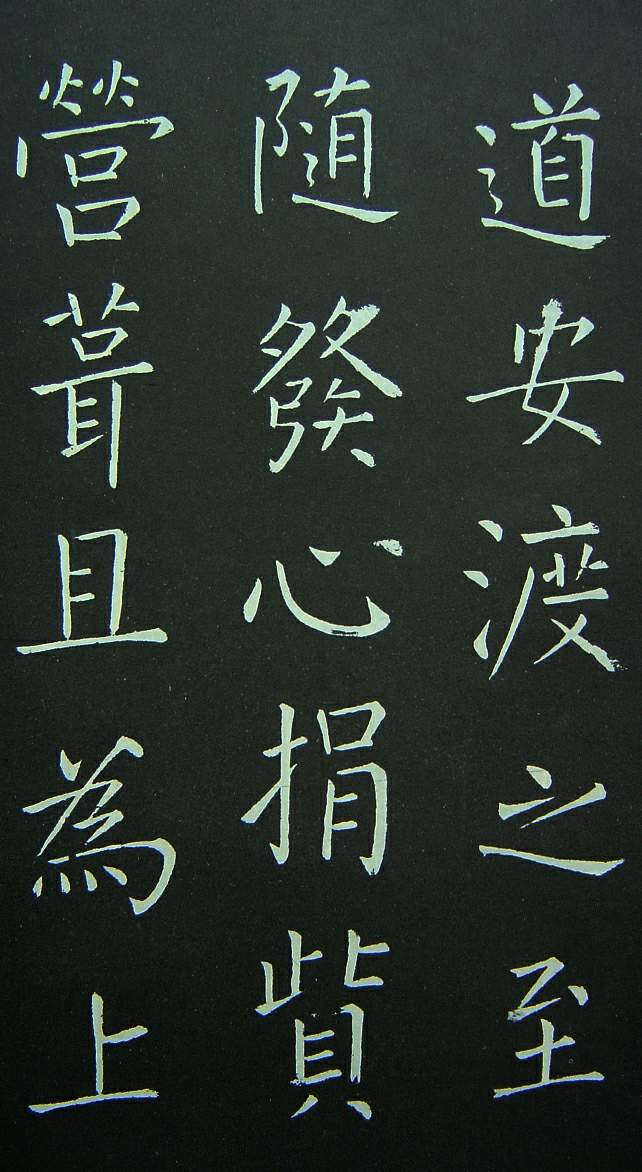 道安渡之至
随發心捐貲
營葺且為上